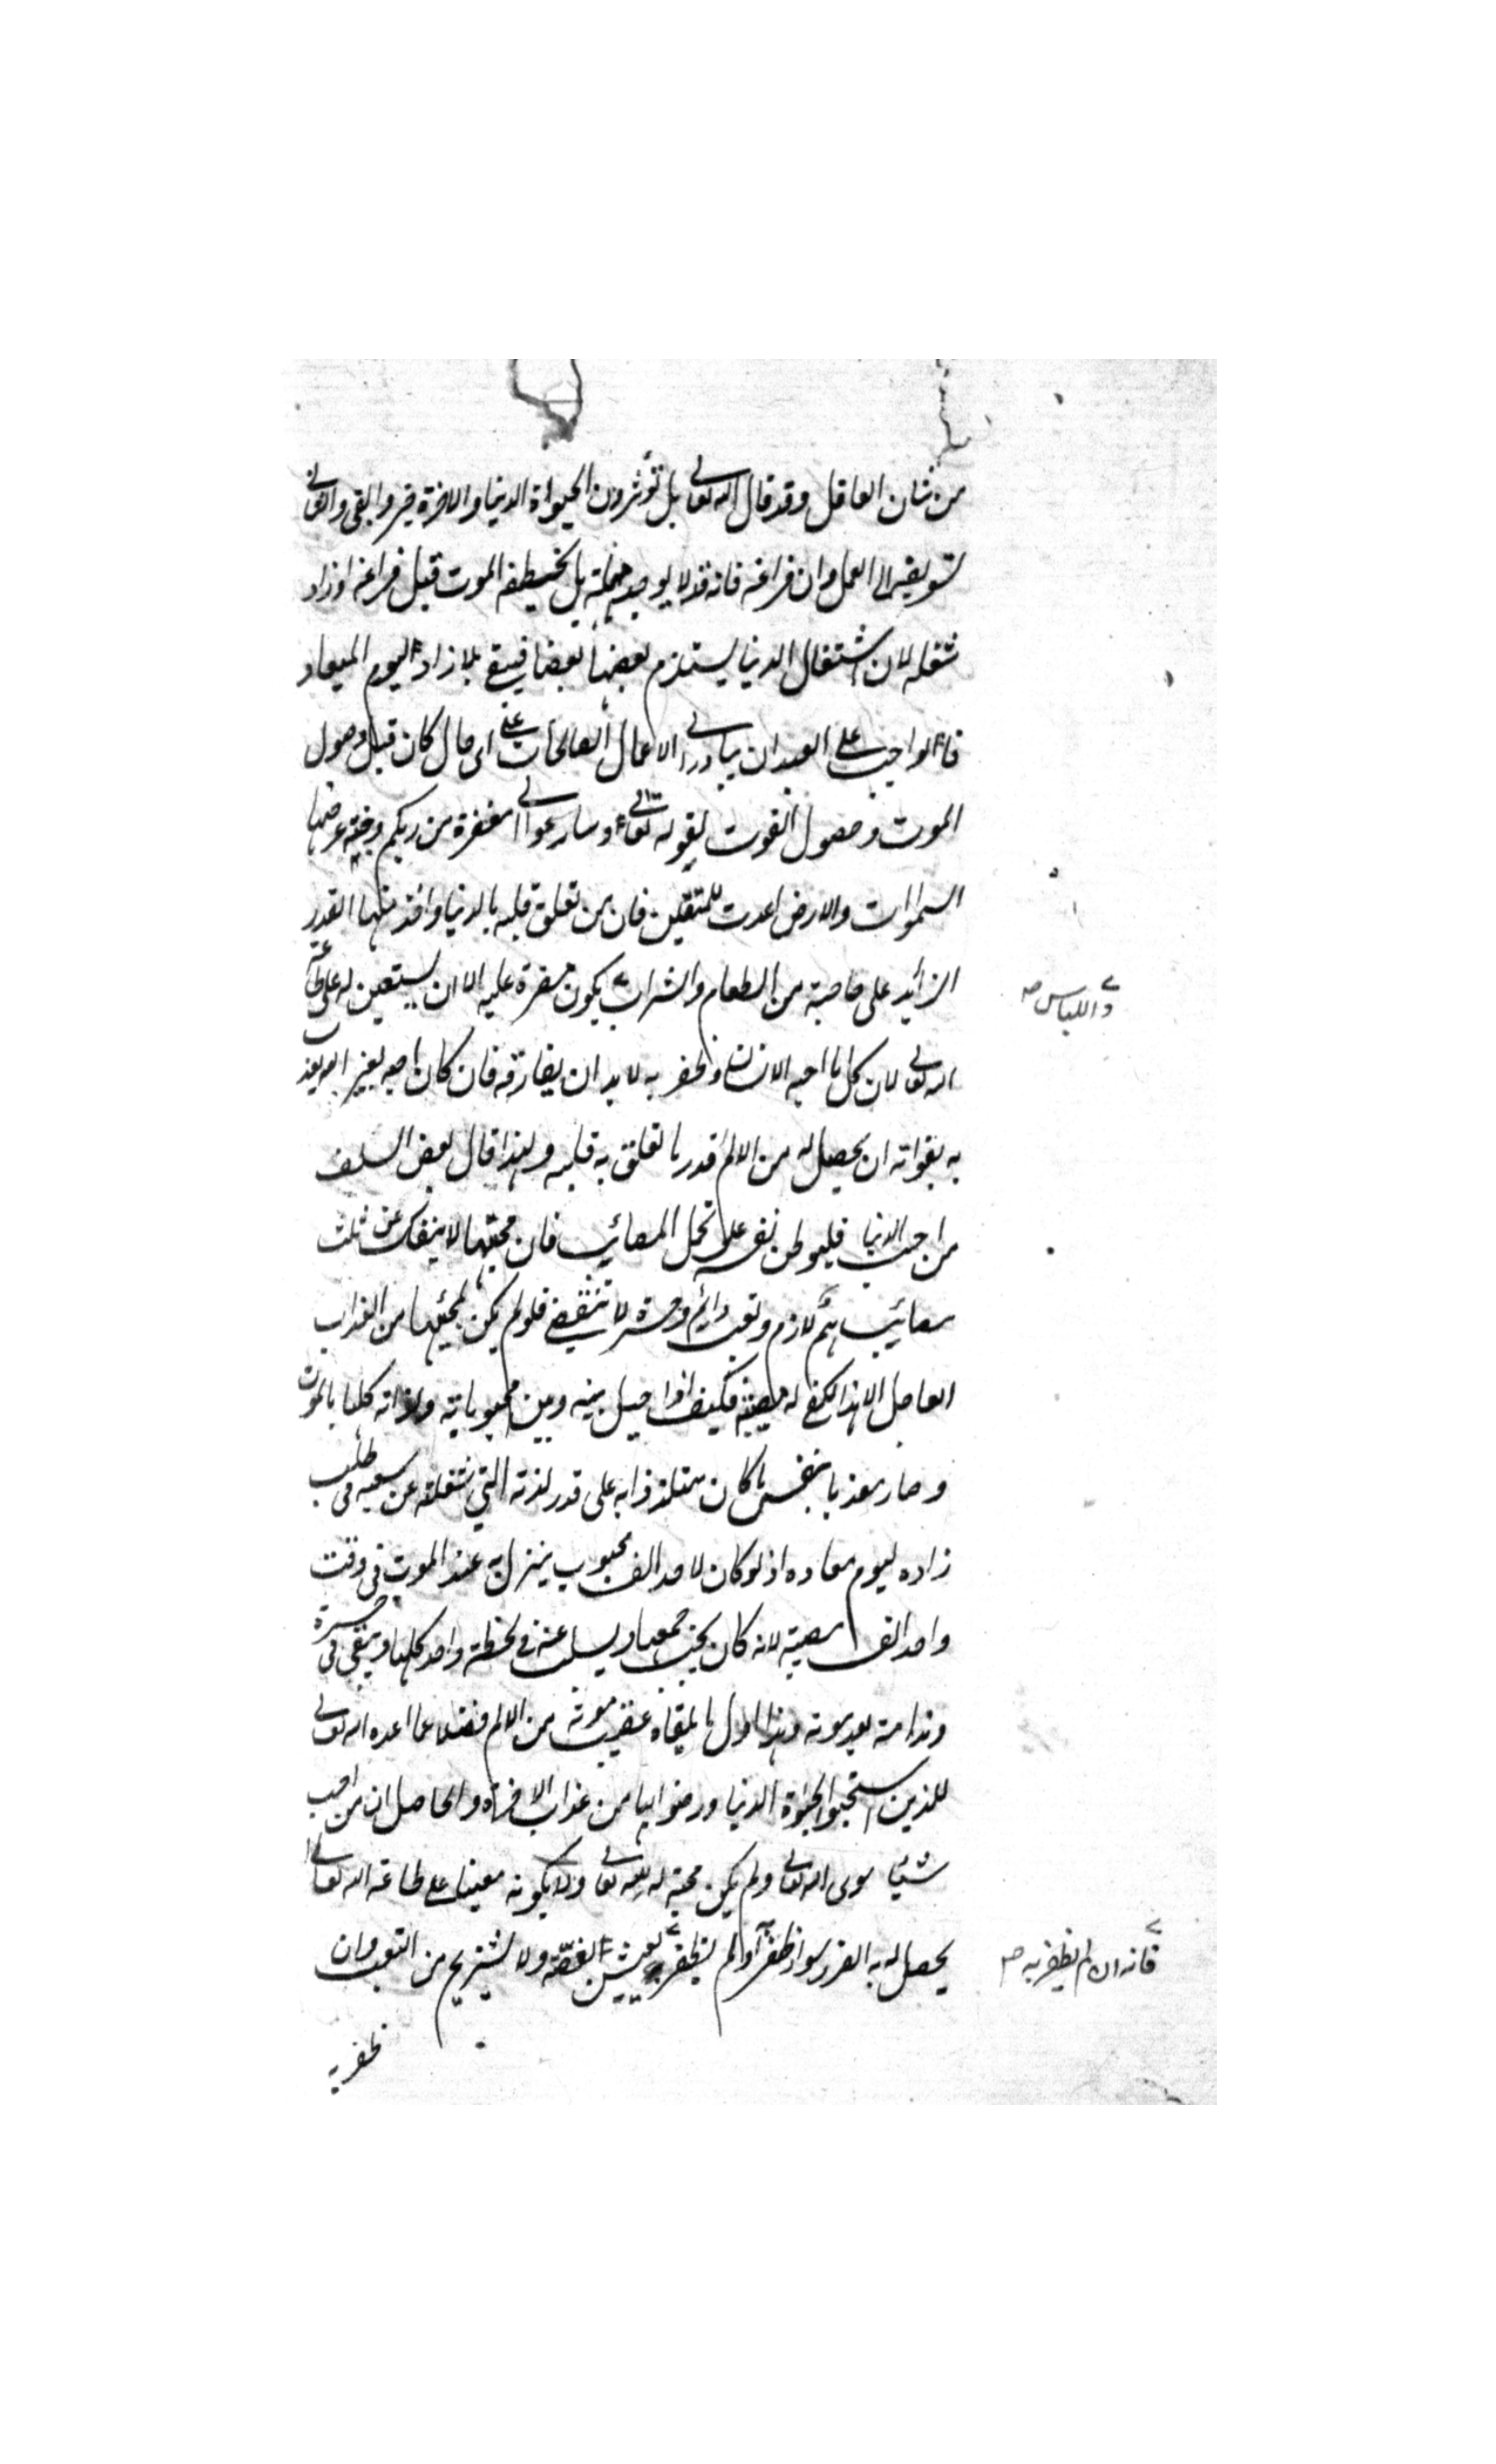 من شان العاقل وقد قال الله تعالى بل تؤثرون الحيوة الدنيا والاخرة خير وابقى والثانى
تسويفه الى العمل اوان فراغه فانه قد لا يوجد مهلة بل يخطفه الموت قبل فراغه او زاد
شغله لان اشتغال الدنيا يستلزم بعضها بعضا فيبقى بلا زاد ليوم الميعاد
فالواجب على العبد ان يبادر الى الاعمال الصالحات على اى حال كان قبل وصول
الموت وحصول الفوت لقوله تعالى وسارعوا الى مغفرة من ربكم وجنة عرضها
السموات والارض اعدت للمتقين فان من تعلق قلبه بالدنيا واخذ منها القدر
الزائد على حاجته من الطعام والشراب يكون مضرة عليه الا ان يستعين له على طاعة
واللباس صح
الله تعالى لان كل ما احبه الانسان وظفر به لا بد ان يفارقه فان كان احبه لغير الله يعذب
به بفواته ان يحصل له من الالم قدر ما تعلق به قلبه ولهذا قال بعض السلف
من احب الدنيا فليوطن نفسه على تحمل المصائب فان محبتها لا ينفك عن ثلث
مصائب هم لازم وتعب دائم وحسرة لا تنقضى فلو لم يكن لمحبتها من العذاب
العاجل الا هذا لكفى له مصيبة فكيف اذا حيل بينه وبين محبوباته ولذاته كلها بالموت
وصار معذبا بنفس ما كان متلذذا به على قدر لذته التي شغلته عن سعيه فى طلب
زاده ليوم معاده اذ لو كان لاحد الف محبوب ينزل به عند الموت فى وقت
واحد الف مصيبة لانه كان يحب جميعها ويسلب عنه فى لحظة واحد كلها ويبقى فى حسرة
وندامة بعد موته وهذا اول ما يلقاه عقيب موته من الالم فضلا عما اعده الله تعالى
للذين استحبوا الحيوة الدنيا ورضوا بها من عذاب الاخرة والحاصل ان من احب
شيئا سوى الله تعالى ولم يكن محبته له لله تعالى ولا يكونه معينا على طاعة الله تعالى
يحصل له به الضرر سواء ظفر او لم يظفر يعيش الغصة ولا يستريح من التعب وان
فانه ان لم يظفر به صح
ظفر به